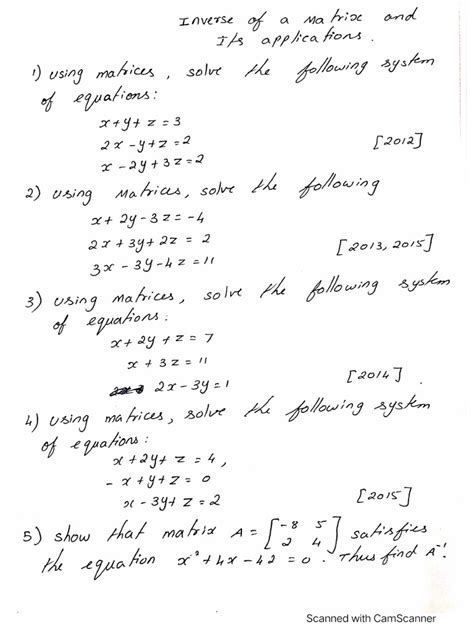 Inverse of a Matrix and
Its applications.
1) using matrices, solve the following system
of equations:
x+y+z=3
2x-y+z=2
x-2y+3z=2 [2012]
2) using Matrices, solve the following
x+2y-3z=-4
2x+3y+2z=2
3x-3y-4z=11 [2013, 2015]
3) using Matrices, solve the following system
of equations:
x+2y+z=7
x+3z=11
2x-3y=1 [2014].
4) using matrices, solve the following system
of equations:
x+2y+z=4,
-x+y+z=0
x-3y+z=2 [2015]
5) show that matrix A = [-8 5
2 4] satisfies
the equation x²+4x-42=0. Thus find A⁻¹.
Scanned with CamScanner